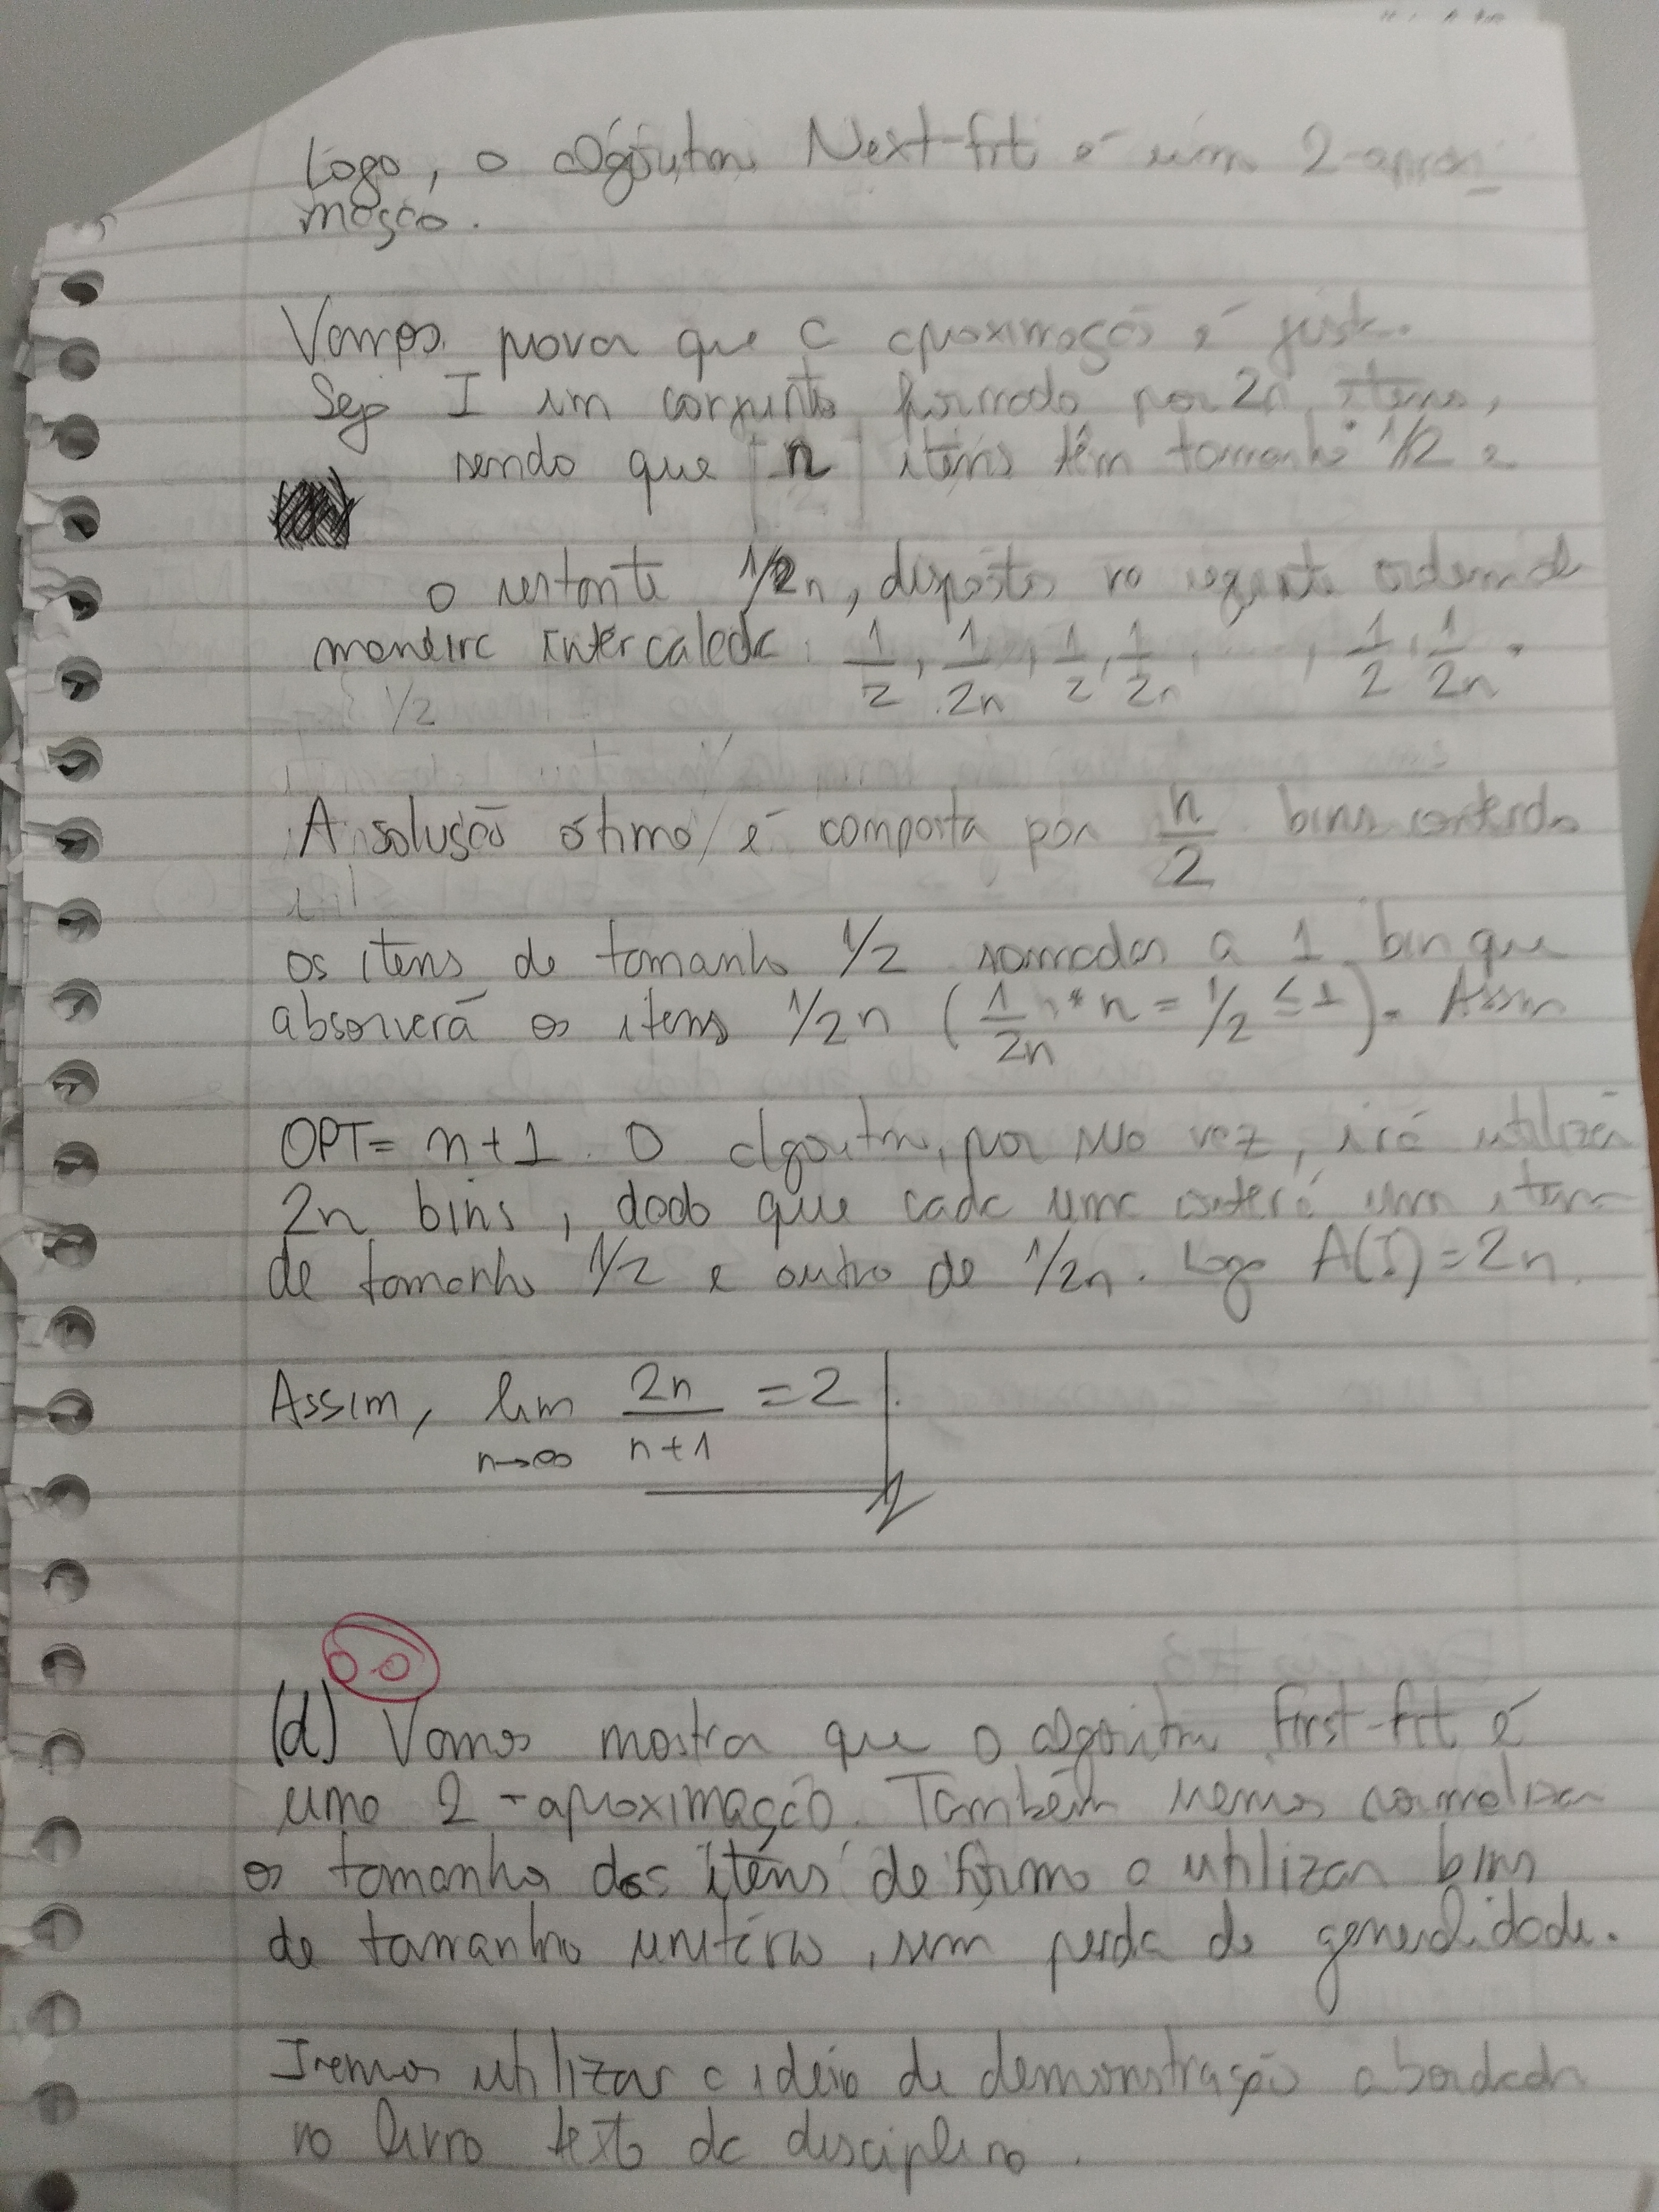 Logo, o algoritmo Next-fit é um 2-aproxi_
mação.
Vamos provar que a aproximação é justa.
Seja I um conjunto formado por 2n itens,
sendo que n itens têm tamanho 1/2 e
o restante 1/2n, dispostos na seguinte ordem de
maneira intercalada: 1/2, 1/2n, 1/2, 1/2n, ..., 1/2, 1/2n.
1/2
A solução ótima é composta por n/2 bins contendo
os itens de tamanho 1/2 somados a 1 bin que
absorverá os itens 1/2n (1/2n * n = 1/2 ≤ 1). Assim
OPT = n+1. O algoritmo, por sua vez, irá utilizar
2n bins, dado que cada um conterá um item
de tamanho 1/2 e outro de 1/2n. Logo A(I) = 2n.
Assim, lim n→∞ 2n/(n+1) = 2
00
(d) Vamos mostra que o algoritmo First-fit é
uma 2-aproximação. Também iremos normalizar
os tamanhos dos itens de forma a utilizar bins
de tamanho unitário, sem perda de generalidade.
Iremos utilizar a ideia de demonstração abordada
no livro texto da disciplina.